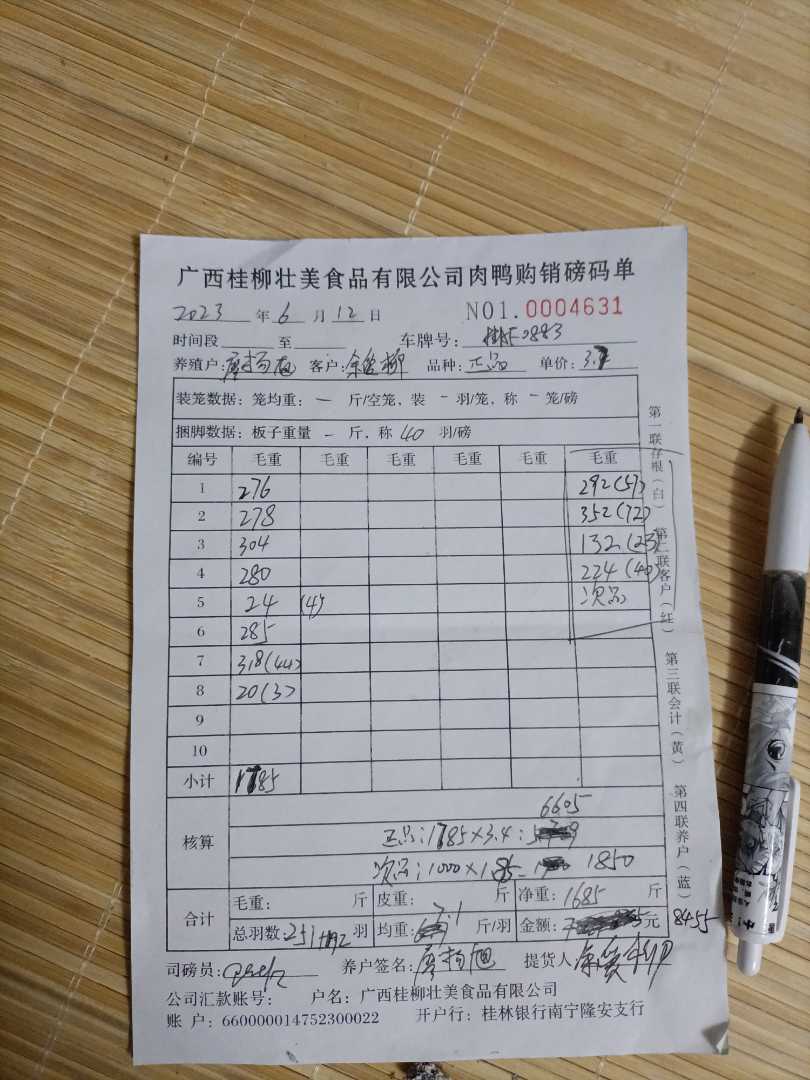 广西桂柳壮美食品有限公司肉鸭购销磅码单
2023 年 6 月 12 日 NO1.0004631
时间段 至 车牌号: 0883
养殖户: 客户: 品种: 正品 单价: 3.7
装笼数据: 笼均重: — 斤/空笼, 装 - 羽/笼, 称 - 笼/磅
捆脚数据: 板子重量 - 斤, 称 40 羽/磅
编号 毛重 毛重 毛重 毛重 毛重 毛重
1 276 292(57)
2 278 352(72)
3 304 132(23)
4 280 224(40)
5 24 (4) 次品
6 285
7 318(44)
8 20(3)
9
10
小计 1785
6605
核算 正品: 1785×3.4:
次品: 1000×1.85- 1850
合计 毛重: 斤 皮重: 斤 净重: 1685 斤
总羽数: 251+192 羽 均重: 7.1 斤/羽 金额: 元 8455
司磅员: 养户签名: 提货人
公司汇款账号: 户名: 广西桂柳壮美食品有限公司
账 户: 660000014752300022 开户行: 桂林银行南宁隆安支行
第一联存根(白) 第二联客户(红) 第三联会计(黄) 第四联养户(蓝)